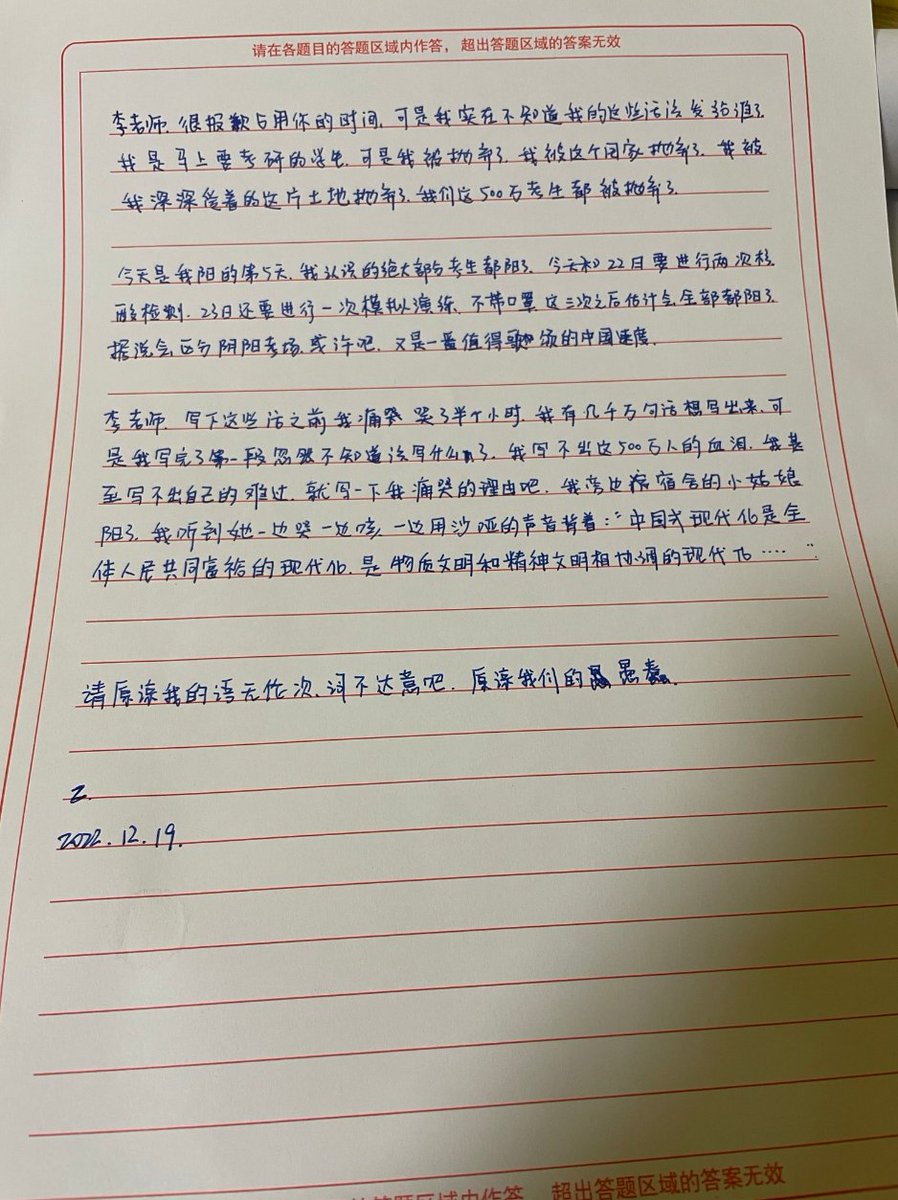 请在各题目的答题区域内作答，超出答题区域的答案无效
李老师，很报歉占用你的时间，可是我实在不知道我的这些话该发给谁了
我是马上要考研的学生，可是我被抛弃了，我被这个国家抛弃了，我被
我深深爱着的这片土地抛弃了，我们这500万考生都被抛弃了
今天是我阳的第5天，我认识的绝大部分考生都阳了，今天和22日要进行两次核
酸检测，23日还要进行一次模拟演练，不带口罩，这三次之后估计会全部都阳了
据说会区分阴阳考场，或许吧，又是一番值得歌颂的中国速度。
李老师，写下这些话之前我痛哭哭了半个小时，我有几千万句话想写出来，可
是我写完了第一段忽然不知道该写什么了，我写不出这500万人的血泪，我甚
至写不出自己的难过，就写一下我痛哭的理由吧，我旁边宿舍的小姑娘
阳了，我听到她一边哭一边咳，一边用沙哑的声音背着：“中国式现代化是全
体人民共同富裕的现代化，是物质文明和精神文明相协调的现代化……”
请原谅我的语无伦次，词不达意吧，原谅我们的愚蠢。
Z.
2022.12.19.
超出答题区域的答案无效